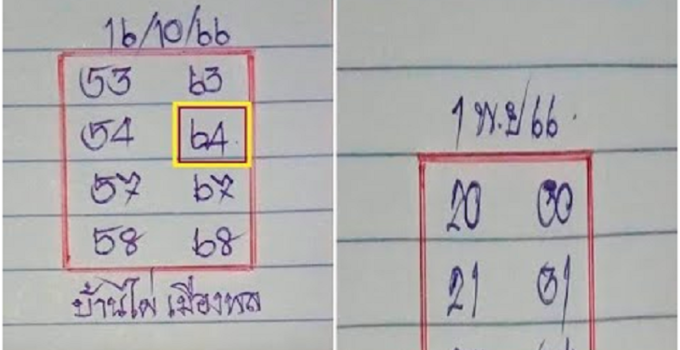 16/10/66
53 63
54 64
57 67
58 68
บ้านไผ่ เมืองพล
1 พ.ย 66
20 30
21 31